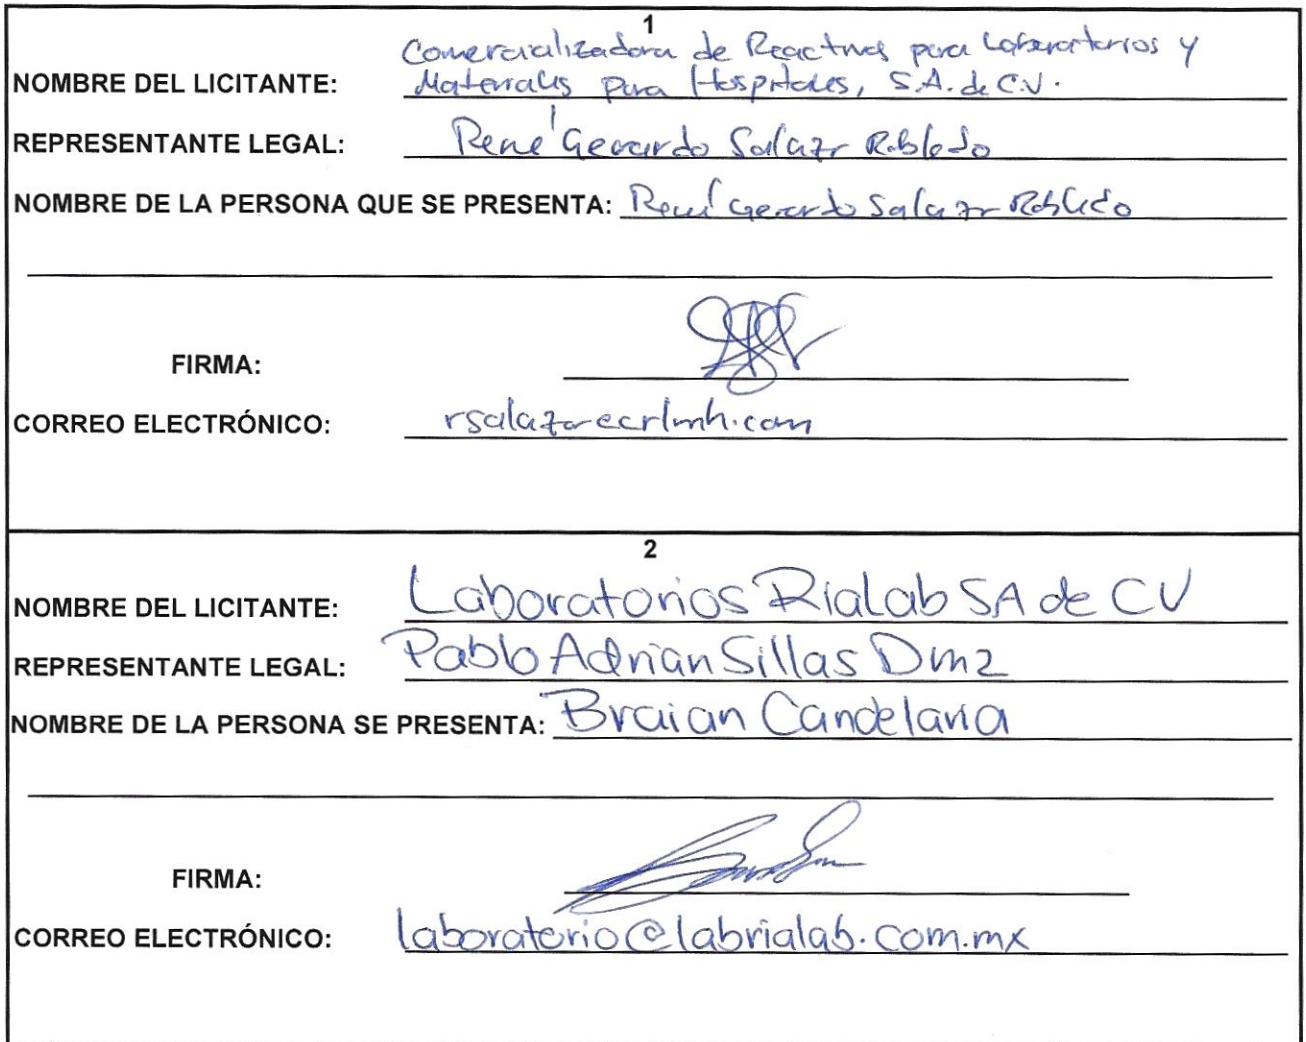 1
Comercializadora de Reactivos para Laboratorios y
NOMBRE DEL LICITANTE: Materiales para Hospitales, S.A. de C.V.
REPRESENTANTE LEGAL: René Gerardo Salazar Robledo
NOMBRE DE LA PERSONA QUE SE PRESENTA: René Gerardo Salazar Robledo
FIRMA:
CORREO ELECTRÓNICO: rsalazar@crlmh.com
2
NOMBRE DEL LICITANTE: Laboratorios Rialab SA de CV
REPRESENTANTE LEGAL: Pablo Adrian Sillas Dmz
NOMBRE DE LA PERSONA SE PRESENTA: Braian Candelaria
FIRMA:
CORREO ELECTRÓNICO: laboratorio@labrialab.com.mx